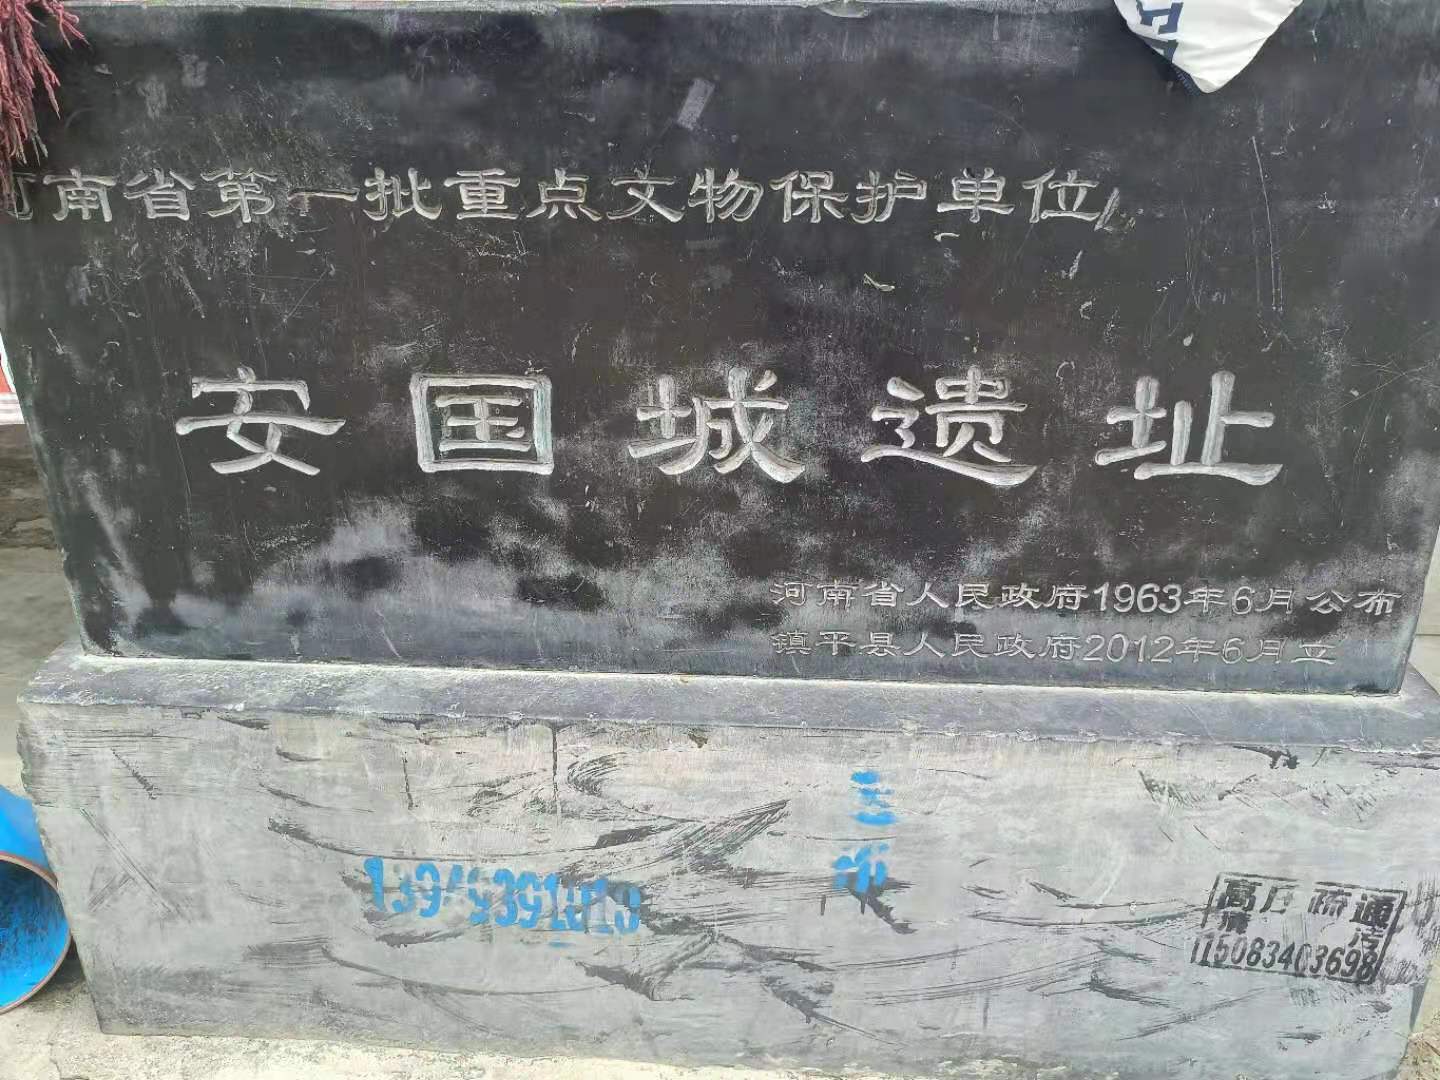 河南省第一批重点文物保护单位
安国城遗址
河南省人民政府1963年6月公布
镇平县人民政府2012年6月立
高压疏通
清洁
15083403698